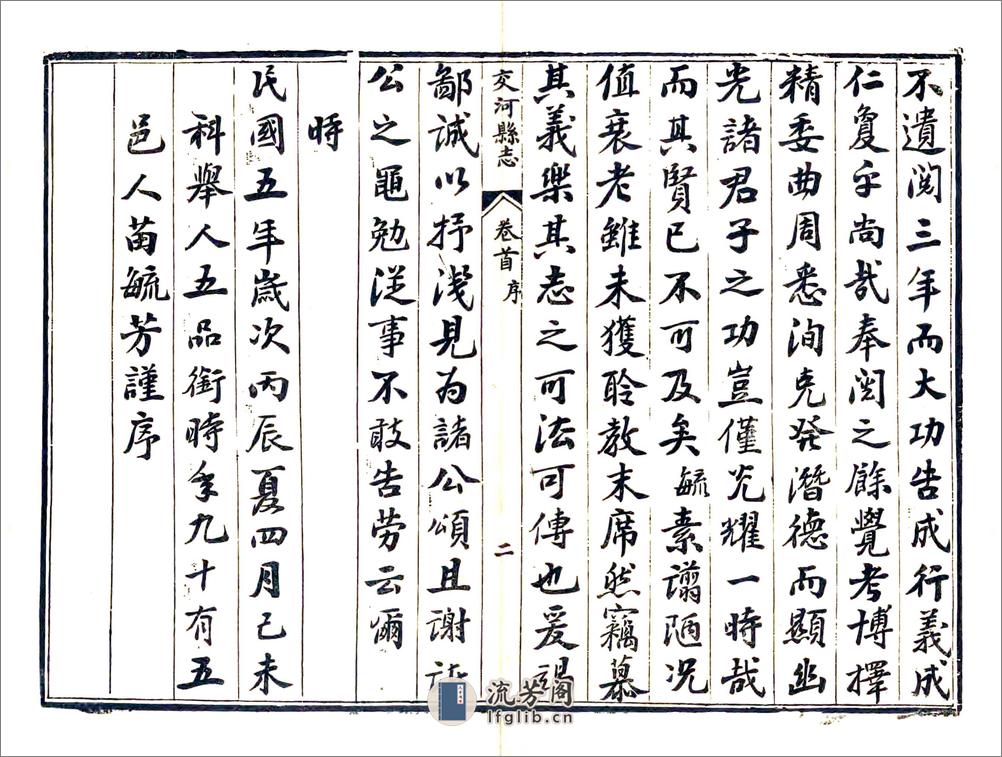 不遺閱三年而大功告成行義成
仁夐乎尚哉奉閱之餘覺考博擇
精委曲周悉洵克發潛德而顯幽
光諸君子之功豈僅光耀一時哉
而其賢已不可及矣毓素謭陋况
值衰老雖未獲聆教末席然竊慕
其義樂其志之可法可傳也爰竭
交河縣志 卷首 序 二
鄙誠以抒淺見為諸公頌且謝諸
公之黽勉從事不敢告勞云爾
時
民國五年歲次丙辰夏四月己未
科舉人五品銜時年九十有五
邑人苗毓芳謹序
流芳阁
lfglib.cn